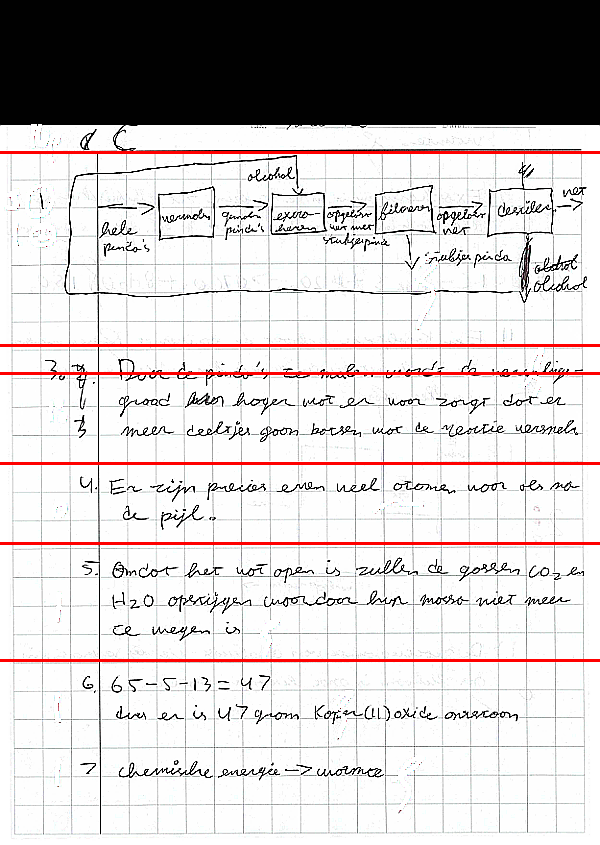 C
1
alcohol
hele
pinda's
vermalen
gemalen
pinda's
extra-
heren
opgelost
vet met
stukjes pinda
filtreren
opgelost
vet
stukjes pinda
destilleren
vet
alcohol
3. Door de pinda's te malen wordt de verdelings-
graad hoger wat er voor zorgt dat er
meer deeltjes gaan botsen wat de reactie versnelt
4. Er zijn precies even veel atomen voor als na
de pijl.
5. Omdat het vat open is zullen de gassen CO2 en
H2O opstijgen waardoor hun massa niet meer
te wegen is
6. 65-5-13=47
dus er is 47 gram Koper(II)oxide ontstaan
7 chemische energie -> warmte